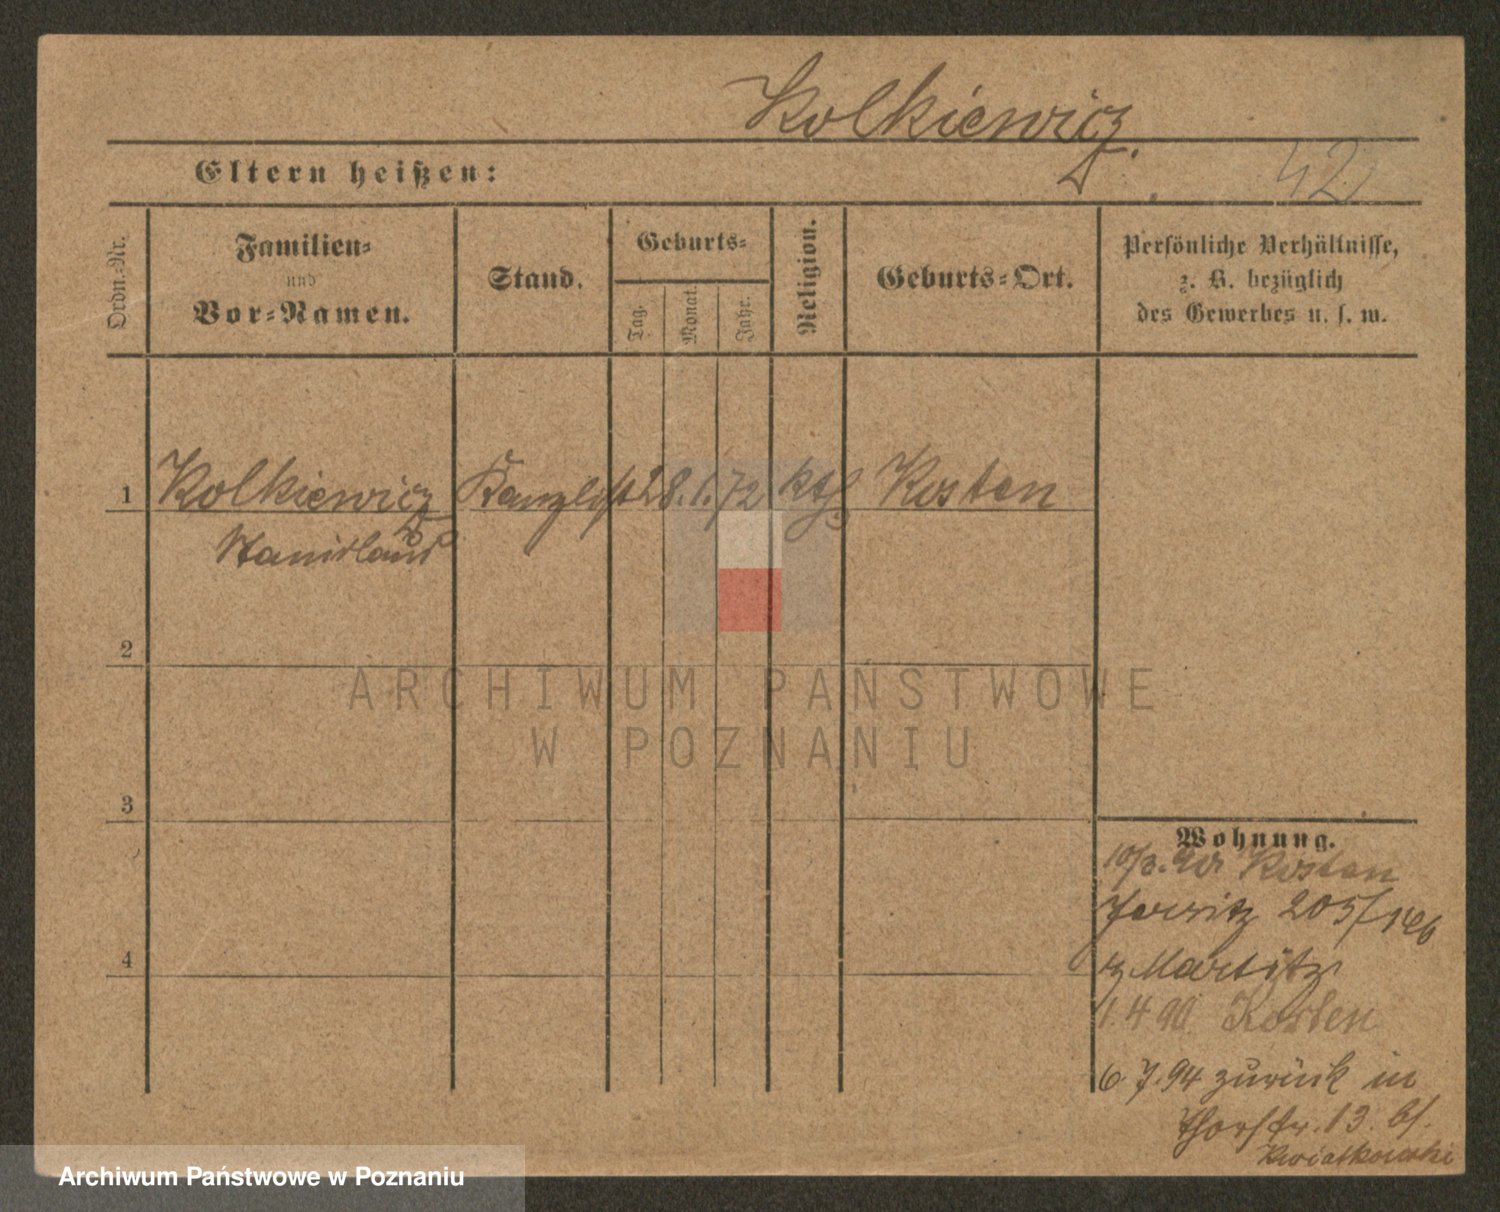 Kolkiewicz.
Eltern heißen:
42
Ordn.-Nr.
Familien-
und
Vor-Namen.
Stand.
Geburts-
Tag.
Monat.
Jahr.
Religion.
Geburts-Ort.
Persönliche Verhältnisse,
z. B. bezüglich
des Gewerbes u. s. w.
1 Kolkiewicz Kanzlist 28. 1. 72 kth Kosten
Stanislaus
2
3
4
Wohnung.
10/3. 90 Kosten
Jersitz 205/
Martitz
1. 4 90 Kosten
6. 7. 94 zurück in
Thorstr. 13. bf.
Kwiatkowski
ARCHIWUM PAŃSTWOWE
W POZNANIU
Archiwum Państwowe w Poznaniu